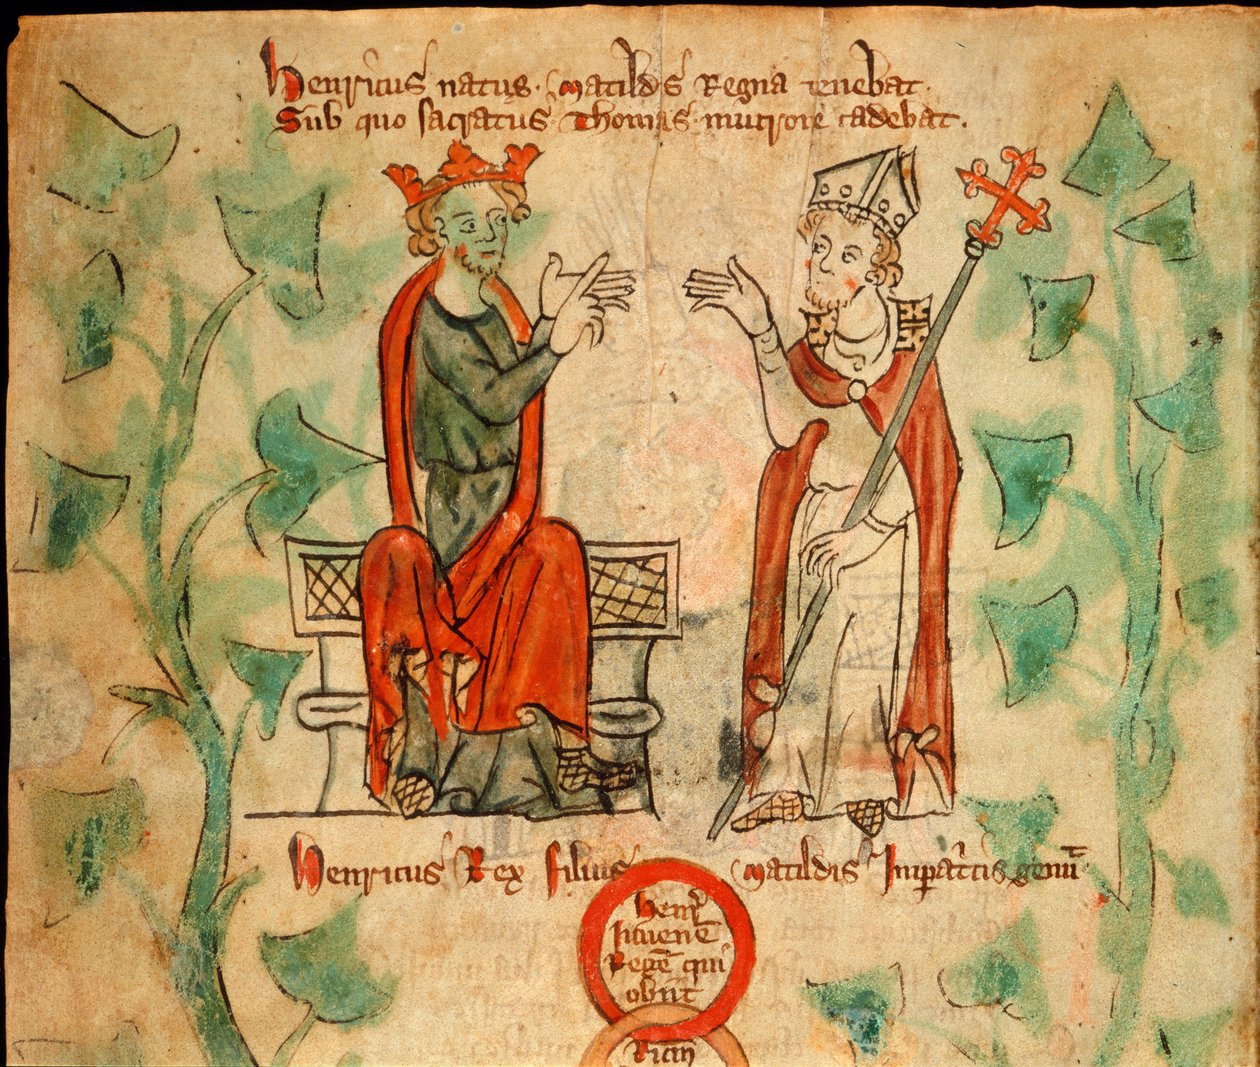 Henricus natus Matildis Regna tenebat.
Sub quo sacratus Thomas mucrone cadebat.
Henricus Rex filius Matildis Imp̄atͥcis genuit
Henͬ
Iuvenē
Regē qui
obiit
Ricm̄